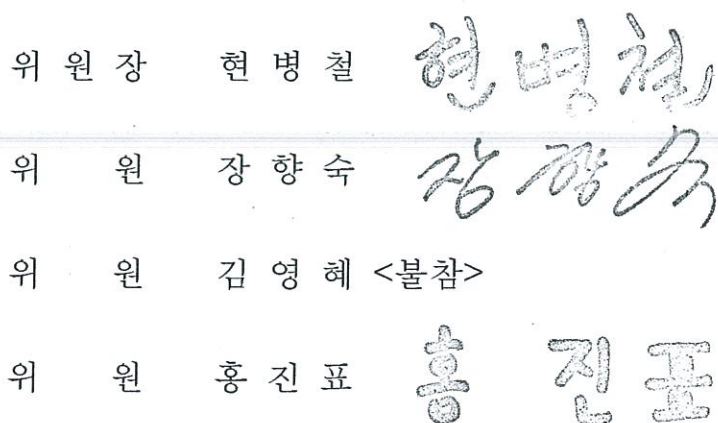 위 원 장 현 병 철 현 병 철
위 원 장 향 숙 장 향 숙
위 원 김 영 혜 <불참>
위 원 홍 진 표 홍 진 표